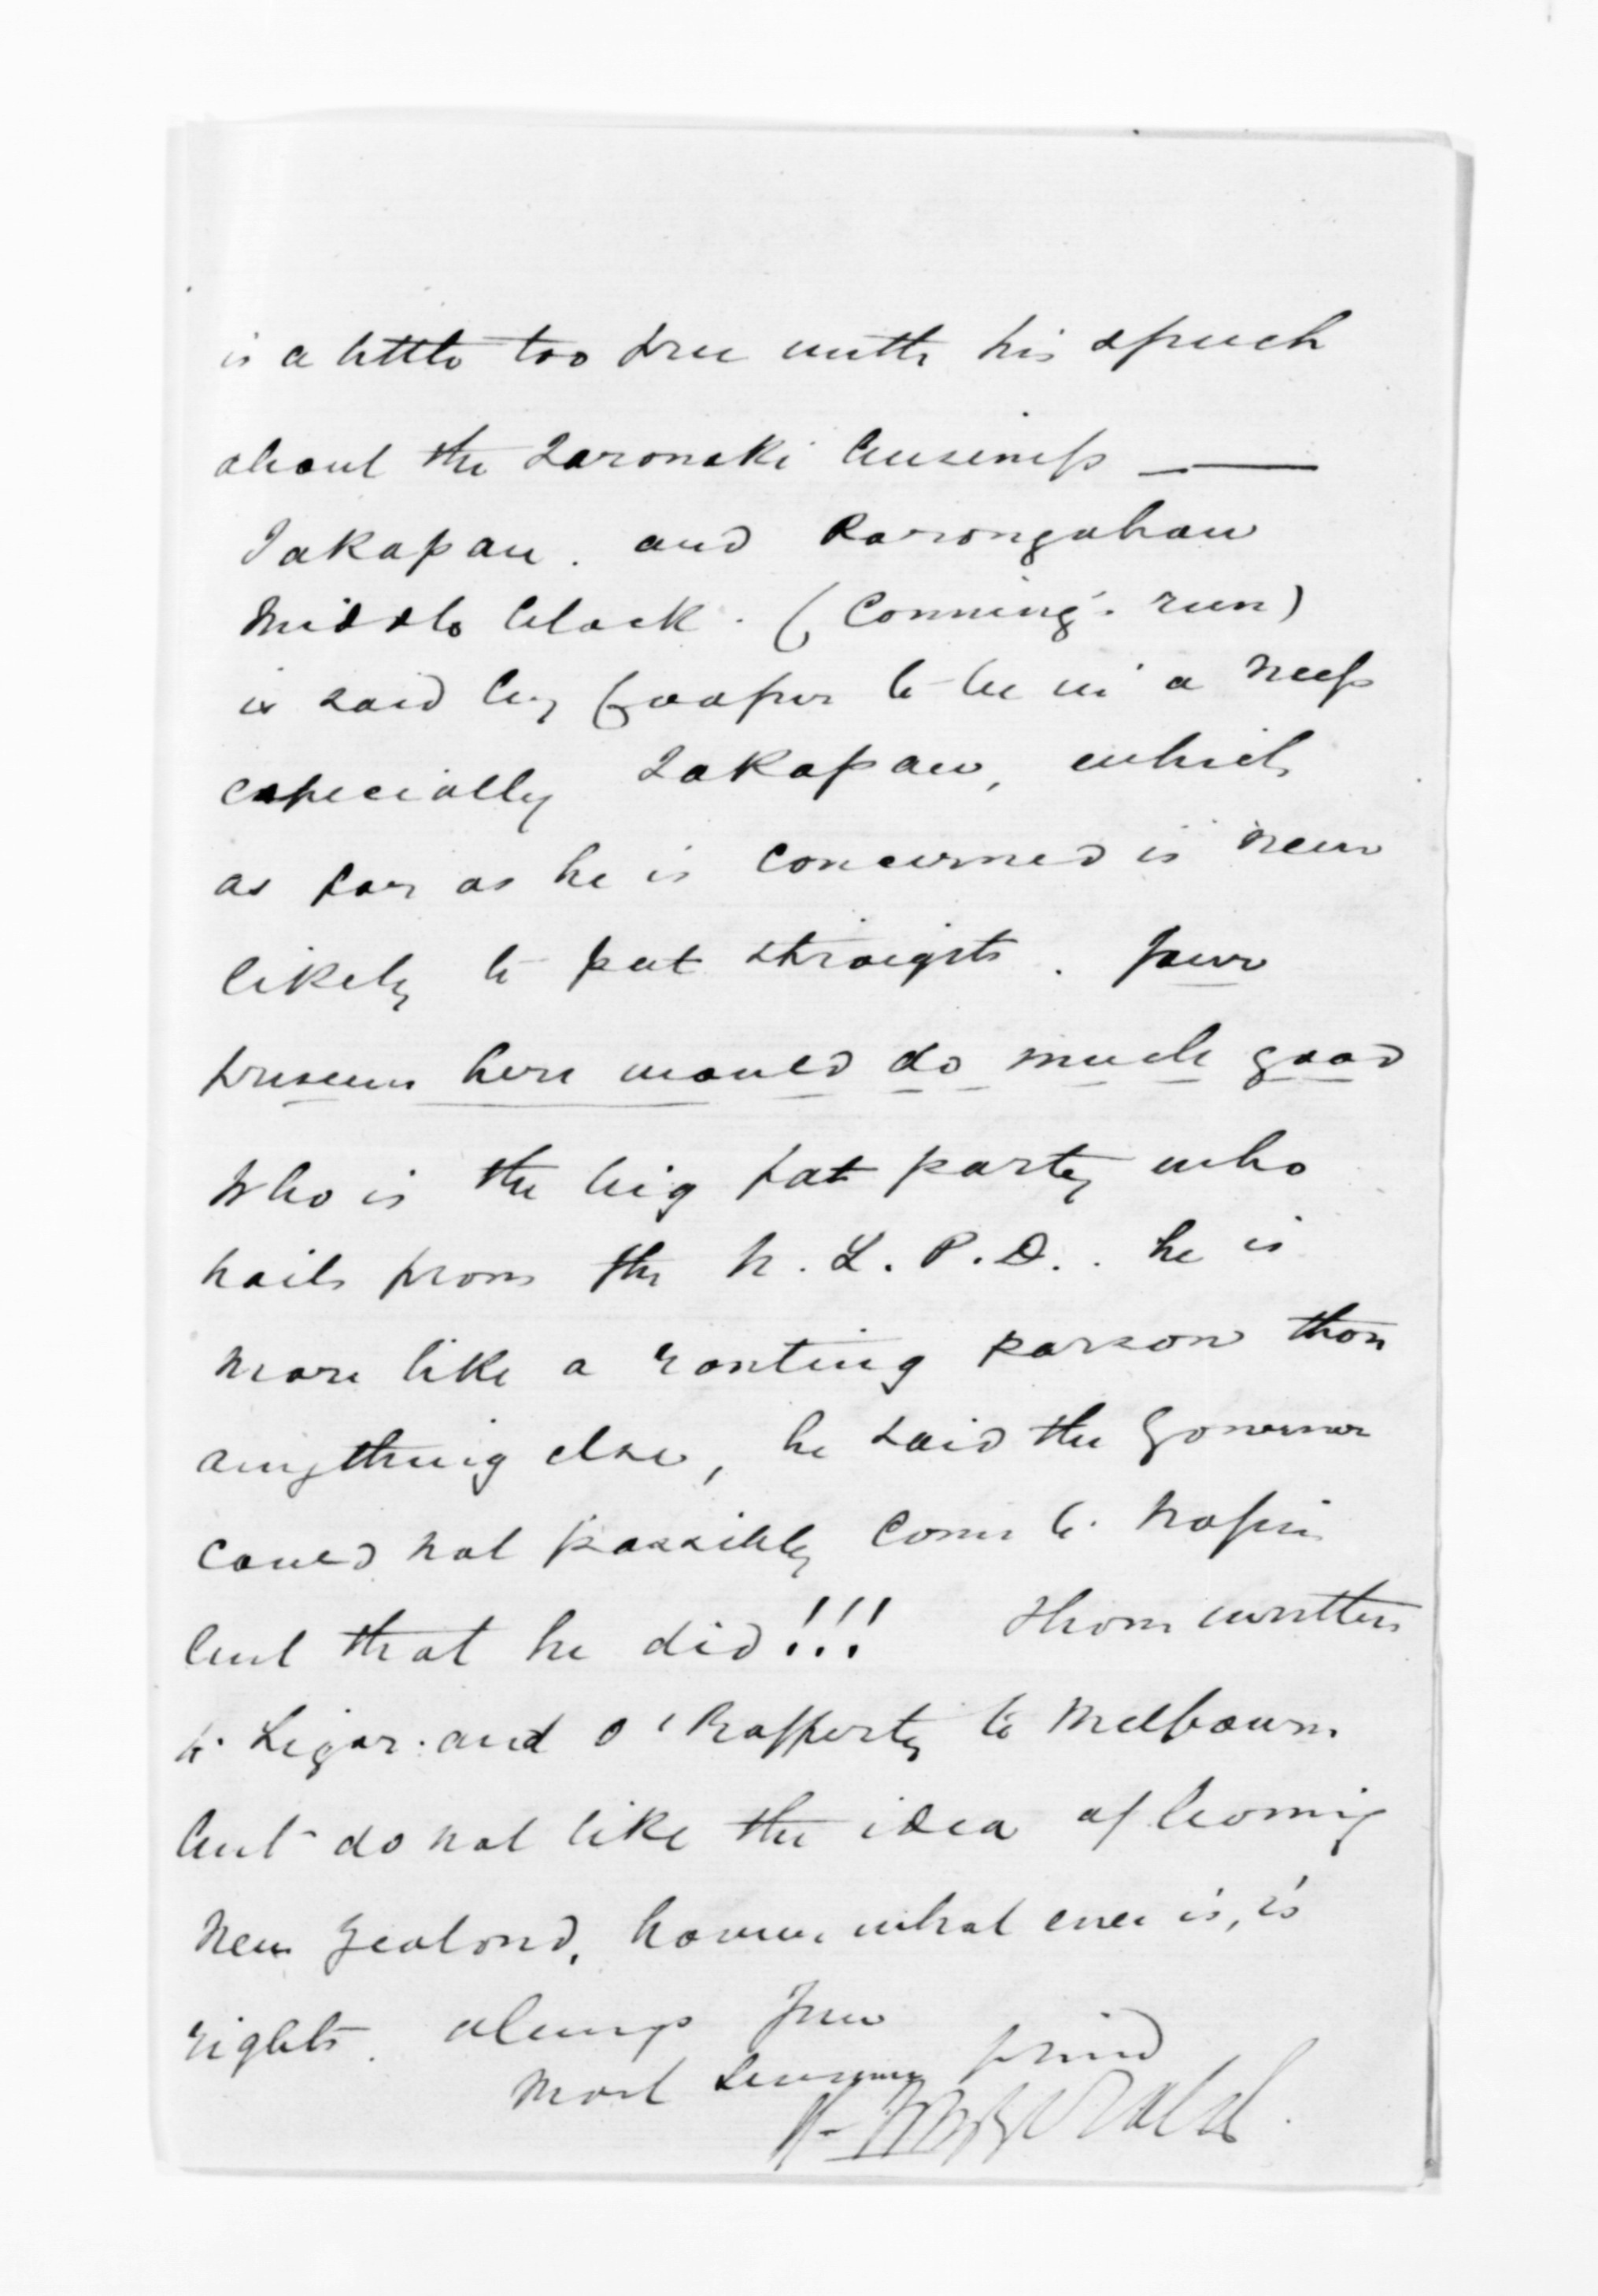 is a little too free with his speech
about the Taranaki business —
Takapau. and Rarongahau
Middle block. (Conning's run)
is said by Cooper to be in a mess
especially Takapau, which
as far as he is concerned is never
likely to put straight. Your
presence here would do much good
Who is the big fat party who
hails from the N. L. P. D.. he is
more like a ranting parson than
anything else, he said the Governor
could not possibly come to Napier
but that he did!!! I have written
to Ligar. and O'Rafferty to Melbourne
but do not like the idea of leaving
New Zealand, however what ever is, is
right. always Your
Most Sincere friend
FitzGerald.